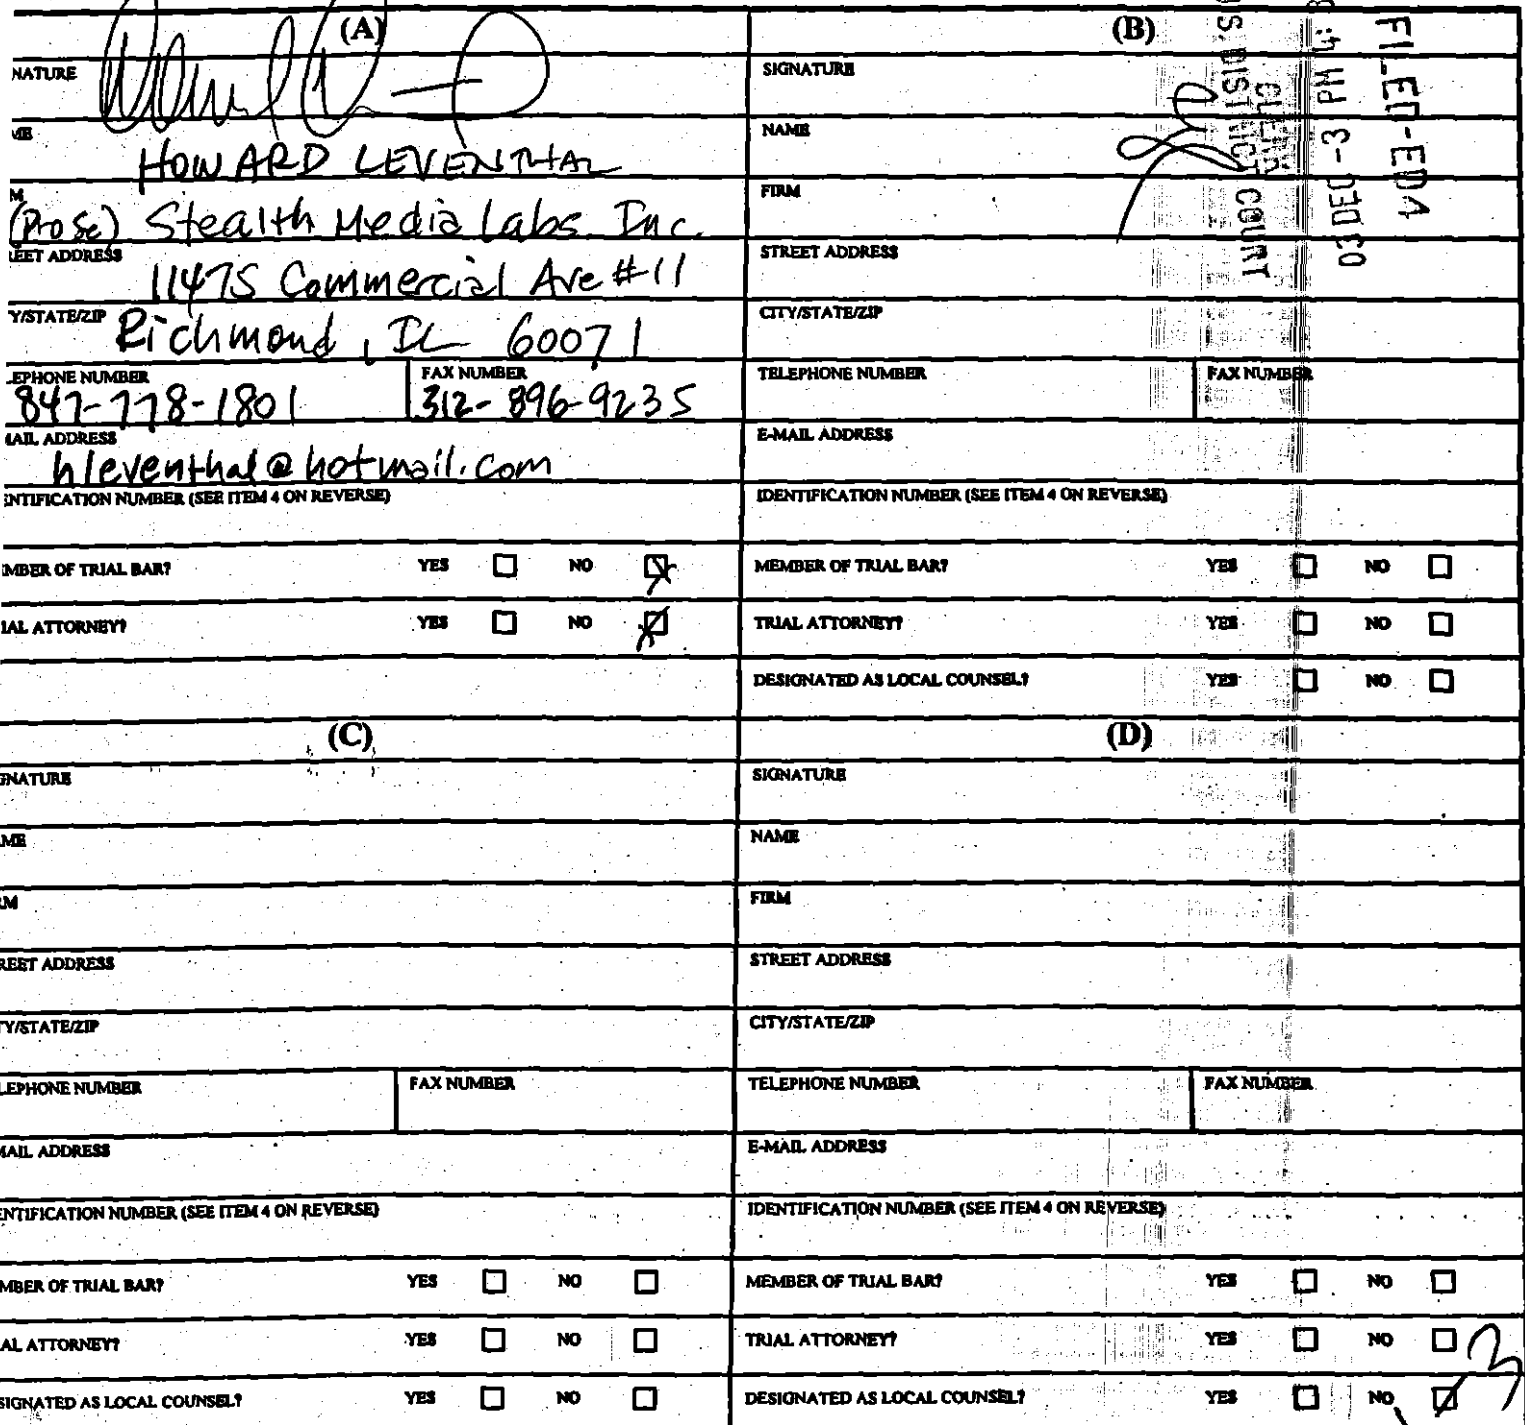 (A)
NATURE
ME
HOWARD LEVENTHAL
M
(Pro se) Stealth Media Labs. Inc.
REET ADDRESS
11475 Commercial Ave #11
Y/STATE/ZIP
Richmond, IL 60071
EPHONE NUMBER
847-778-1801
FAX NUMBER
312-896-9235
MAIL ADDRESS
hleventhal@hotmail.com
ENTIFICATION NUMBER (SEE ITEM 4 ON REVERSE)
MBER OF TRIAL BAR? YES NO
IAL ATTORNEY? YES NO
(B)
SIGNATURE
NAME
FIRM
STREET ADDRESS
CITY/STATE/ZIP
TELEPHONE NUMBER
FAX NUMBER
E-MAIL ADDRESS
IDENTIFICATION NUMBER (SEE ITEM 4 ON REVERSE)
MEMBER OF TRIAL BAR? YES NO
TRIAL ATTORNEY? YES NO
DESIGNATED AS LOCAL COUNSEL? YES NO
FILED-EDA
03 DEC -3 PM 4:
CLERK
S. DISTRICT COURT
(C)
GNATURE
AME
RM
REET ADDRESS
TY/STATE/ZIP
LEPHONE NUMBER
FAX NUMBER
MAIL ADDRESS
ENTIFICATION NUMBER (SEE ITEM 4 ON REVERSE)
MBER OF TRIAL BAR? YES NO
AL ATTORNEY? YES NO
SIGNATED AS LOCAL COUNSEL? YES NO
(D)
SIGNATURE
NAME
FIRM
STREET ADDRESS
CITY/STATE/ZIP
TELEPHONE NUMBER
FAX NUMBER
E-MAIL ADDRESS
IDENTIFICATION NUMBER (SEE ITEM 4 ON REVERSE)
MEMBER OF TRIAL BAR? YES NO
TRIAL ATTORNEY? YES NO
DESIGNATED AS LOCAL COUNSEL? YES NO
3